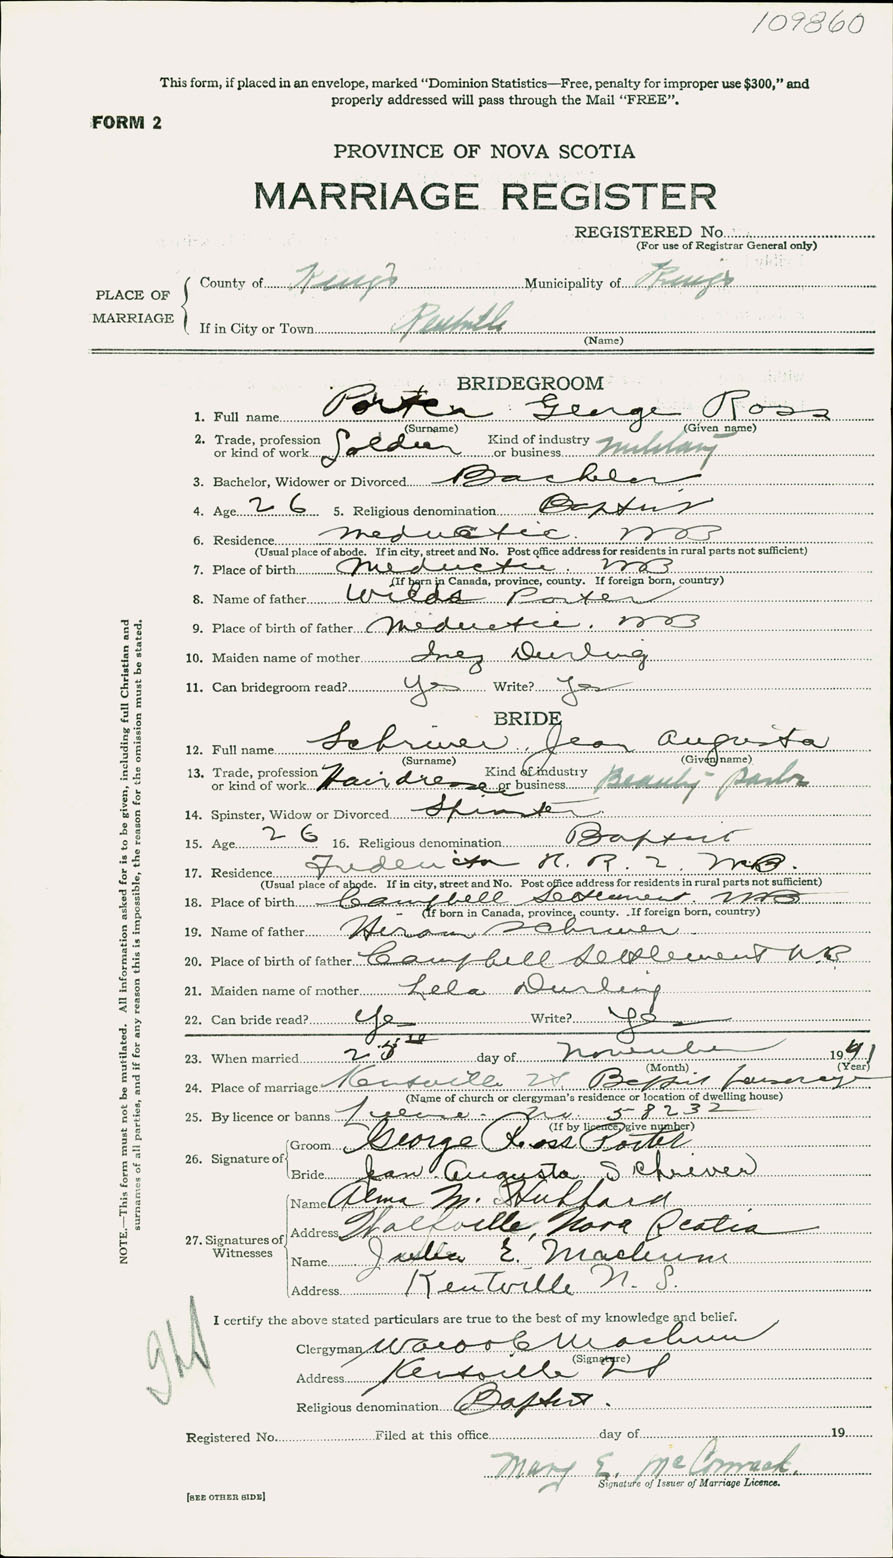 109860
This form, if placed in an envelope, marked "Dominion Statistics—Free, penalty for improper use $300," and
properly addressed will pass through the Mail "FREE".
FORM 2
PROVINCE OF NOVA SCOTIA
MARRIAGE REGISTER
REGISTERED No.
(For use of Registrar General only)
PLACE OF MARRIAGE
County of Kings Municipality of Kings
If in City or Town Kentville
(Name)
BRIDEGROOM
1. Full name Porter George Ross
(Surname) (Given name)
2. Trade, profession or kind of work Soldier Kind of industry or business Military
3. Bachelor, Widower or Divorced Bachelor
4. Age 26 5. Religious denomination Baptist
6. Residence Meductic. NB
(Usual place of abode. If in city, street and No. Post office address for residents in rural parts not sufficient)
7. Place of birth Meductic. NB
(If born in Canada, province, county. If foreign born, country)
8. Name of father Porter
9. Place of birth of father Meductic. NB
10. Maiden name of mother Inez Durling
11. Can bridegroom read? Yes Write? Yes
BRIDE
12. Full name Schriver, Jean Augusta
(Surname) (Given name)
13. Trade, profession or kind of work Hairdresser Kind of industry or business Beauty Parlor
14. Spinster, Widow or Divorced Spinster
15. Age 26 16. Religious denomination Baptist
17. Residence Fredericton R. R. 2 NB.
(Usual place of abode. If in city, street and No. Post office address for residents in rural parts not sufficient)
18. Place of birth Campbell Settlement. NB
(If born in Canada, province, county. If foreign born, country)
19. Name of father Hiram Schriver
20. Place of birth of father Campbell Settlement NB
21. Maiden name of mother Lela Durling
22. Can bride read? Yes Write? Yes
23. When married day of November 1941
(Month) (Year)
24. Place of marriage Kentville NS. Baptist Parsonage
(Name of church or clergyman's residence or location of dwelling house)
25. By licence or banns License. No. 58232
(If by licence, give number)
26. Signature of Groom George Ross Porter
Bride Jean Augusta Schriver
27. Signatures of Witnesses
Name Alma M. Hubbard
Address Wolfville, Nova Scotia
Name E.
Address Kentville N. S.
I certify the above stated particulars are true to the best of my knowledge and belief.
Clergyman
(Signature)
Address Kentville NS
Religious denomination Baptist.
Registered No. Filed at this office day of 19
Mary E. McCormack.
Signature of Issuer of Marriage Licence.
[SEE OTHER SIDE]
NOTE.—This form must not be mutilated. All information asked for is to be given, including full Christian and
surnames of all parties, and if for any reason this is impossible, the reason for the omission must be stated.